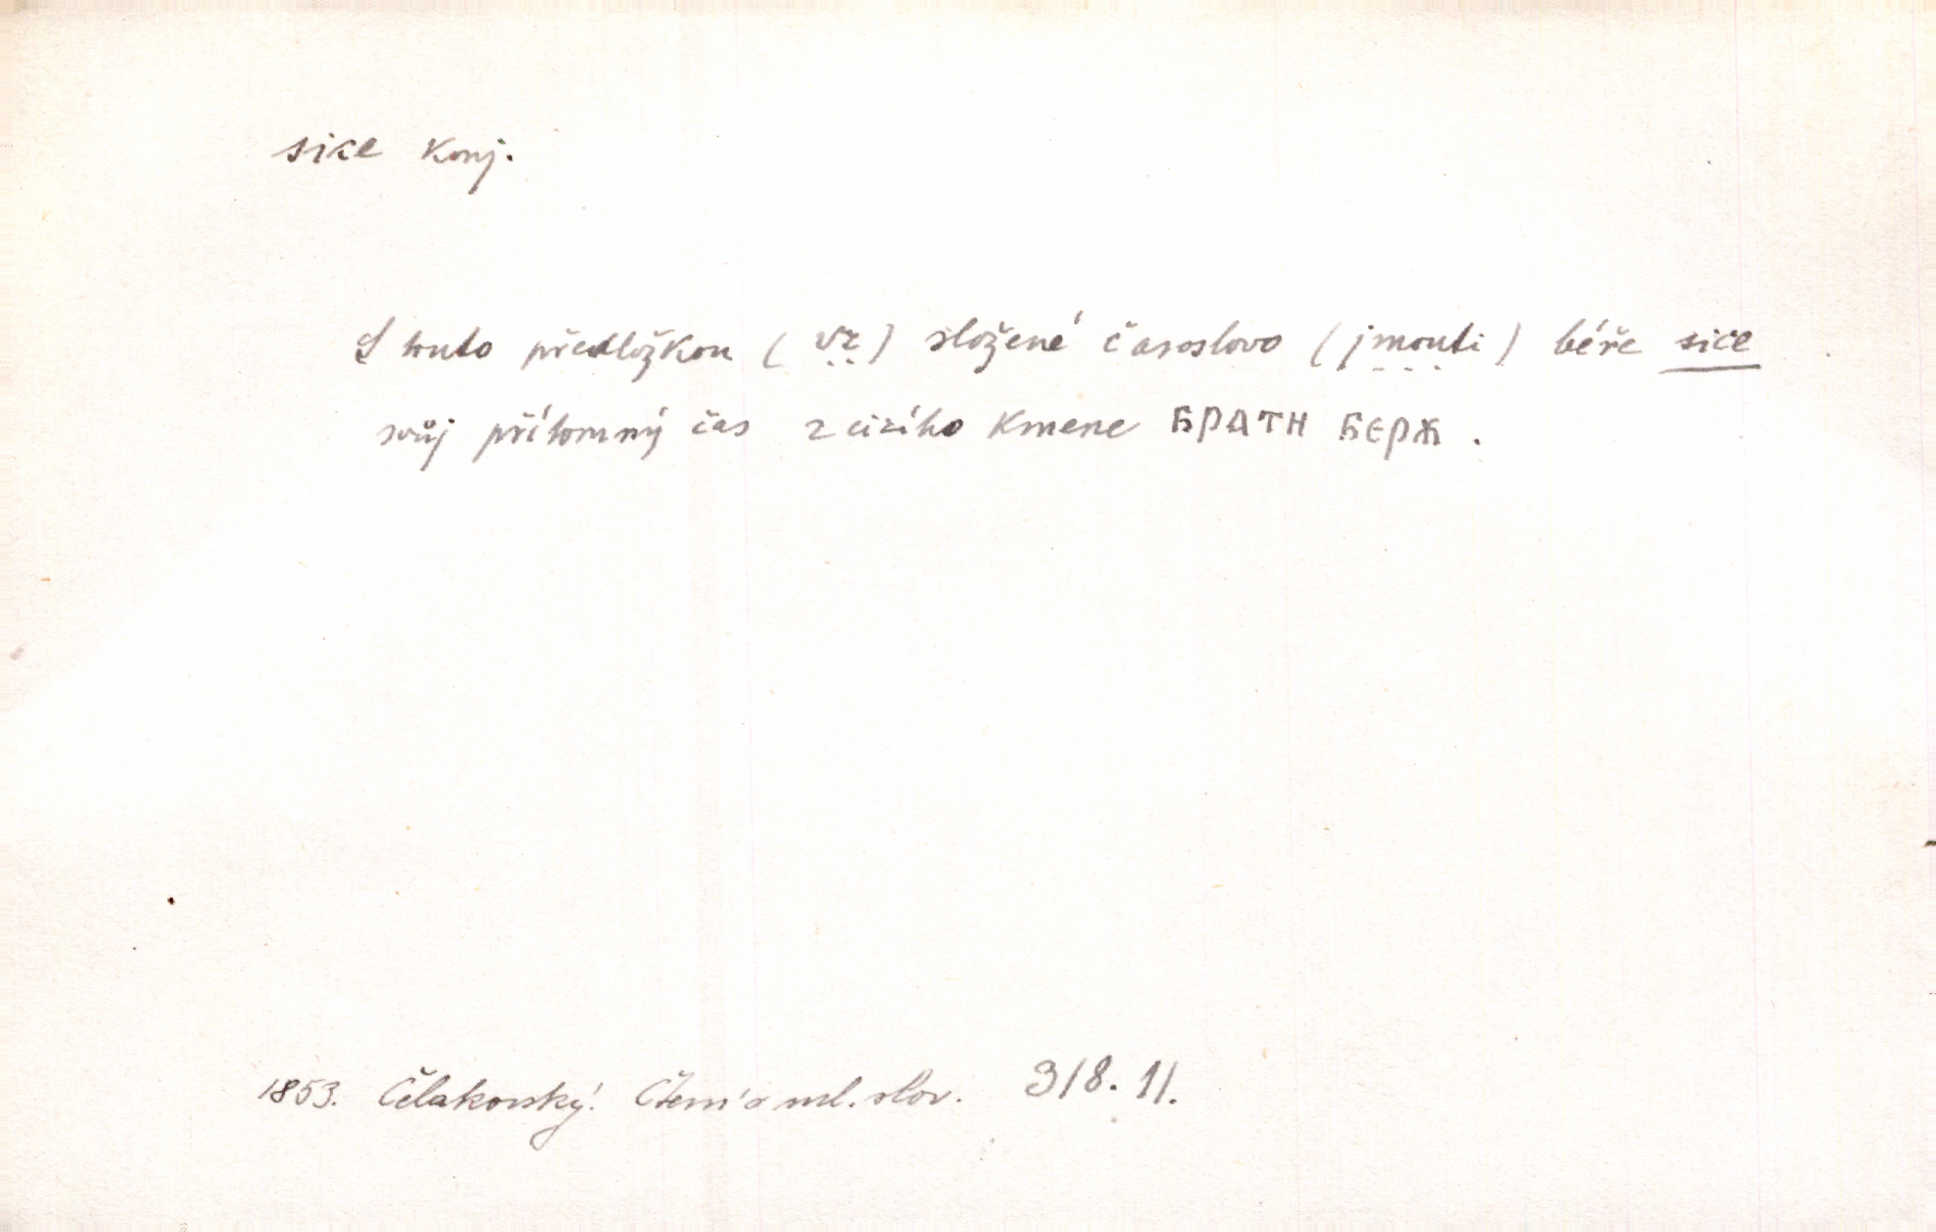 sice konj.
S touto předložkou (vz) složené časoslovo (jmouti) béře sice
svůj přítomný čas z cizího kmene БРАТН БЕРѪ.
1853. Čelakovský. Čtení o ml. slov. 318. 11.